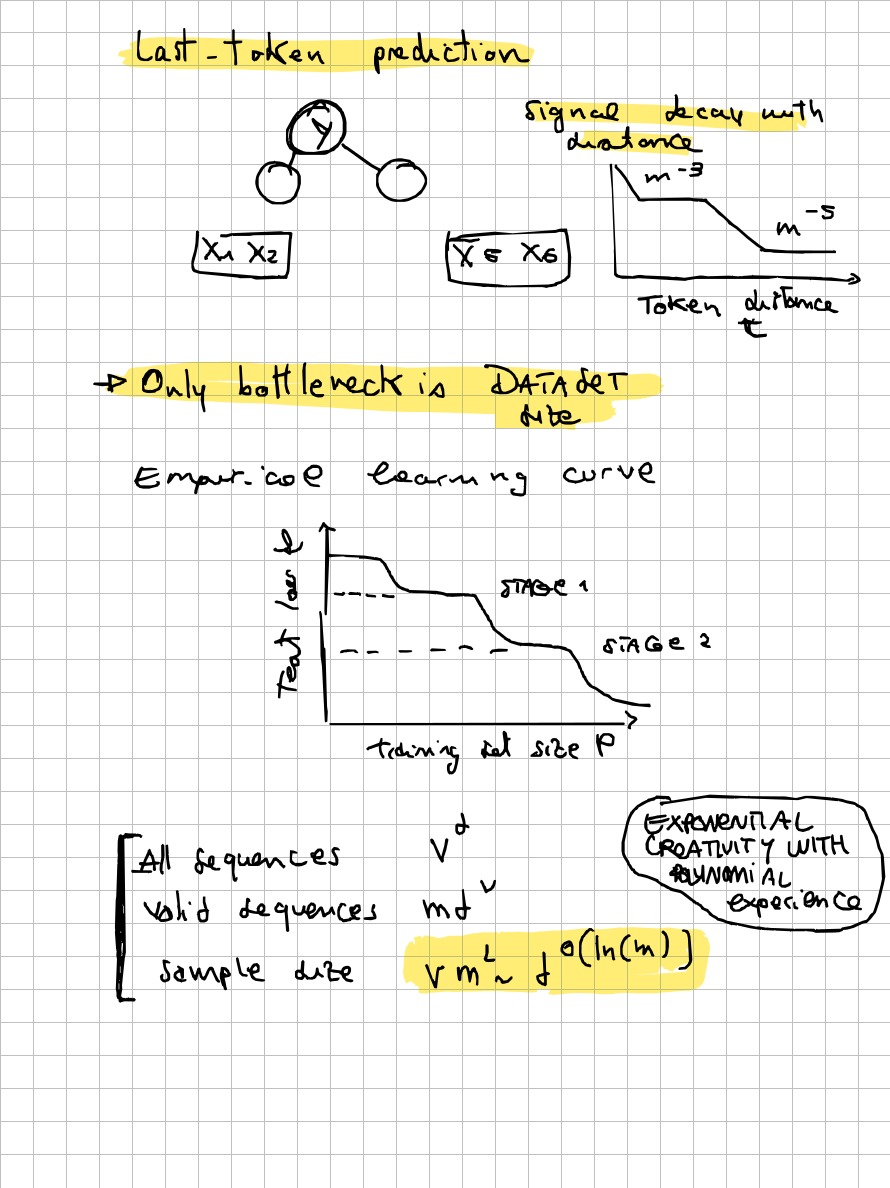 Last-token prediction
Signal decay with
distance
Y
m⁻³
m⁻⁵
X₁ X₂
X₅ X₆
Token distance
t
→ Only bottleneck is DATASET
size
Empirical learning curve
Test loss L
STAGE 1
STAGE 2
training set size P
EXPONENTIAL
CREATIVITY WITH
POLYNOMIAL
experience
All sequences v^d
valid sequences md^v
sample size v m^L ~ d^O(ln(m))